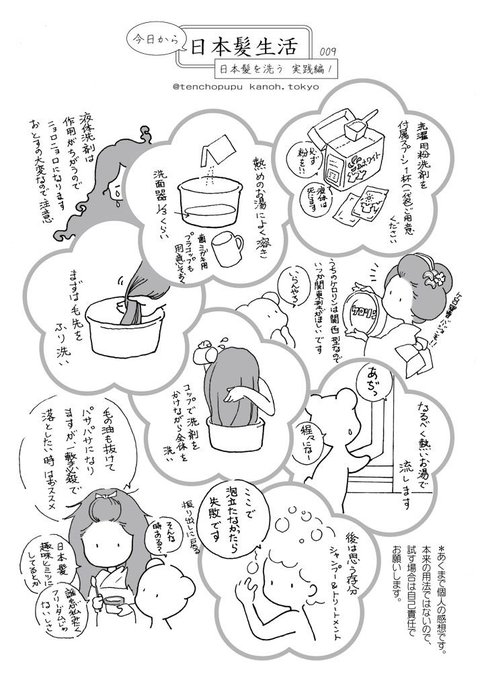 今日から
日本髪生活
009
日本髪を洗う 実践編1
@tenchopupu kanoh.tokyo
洗濯用粉洗剤を
付属スプーン一杯(一袋)用意
ください
必ず
粉を!!
液体は
死にます
ホワイト
熱めのお湯によく溶き
洗面器1/3くらい
歯ミガキ用
プラコップも
用意しておく
液体洗剤は
作用がちがうので
ニョロニョロになります
おとすの大変なので注意
まずは毛先を
ふり洗い
うちのケロリンは関西型なので
いつか関東型がほしいです
いらんやろ
ケロリン
コップで洗剤を
かけながら全体を
洗い
なるべく熱いお湯で
流します
あぢっ
程々にな
毛の油も抜けて
パサパサになり
ますが、一撃必殺で
落としたい時はおススメ
そんな
時ある?
日本髪
趣味とミツに
してるとか
ここで
泡立たなかたら
失敗です
振り出しに戻る
後は思う存分
シャンプー&トリートメント
*あくまで個人の感想です。
本来の用法ではないので、
試す場合は自己責任で
お願いします。